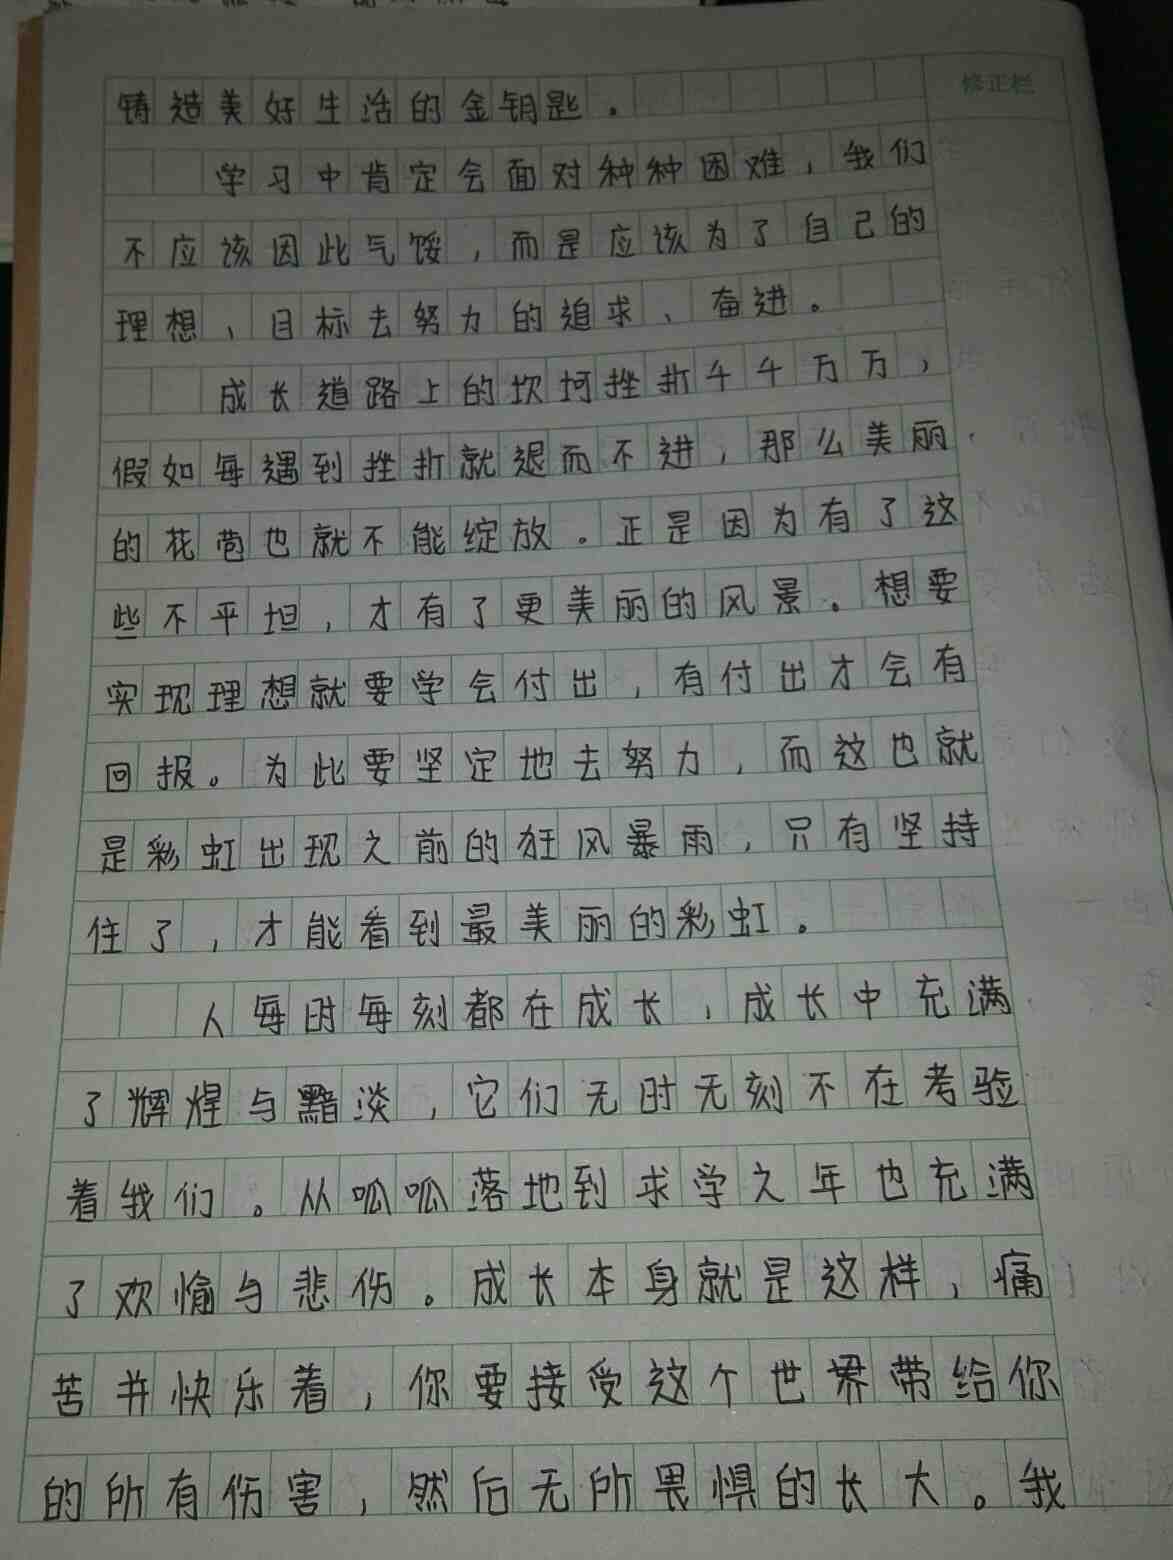 铸造美好生活的金钥匙。
修正栏
学习中肯定会面对种种困难，我们
不应该因此气馁，而是应该为了自己的
理想、目标去努力的追求、奋进。
成长道路上的坎坷挫折千千万万，
假如每遇到挫折就退而不进，那么美丽
的花苞也就不能绽放。正是因为有了这
些不平坦，才有了更美丽的风景。想要
实现理想就要学会付出，有付出才会有
回报。为此要坚定地去努力，而这也就
是彩虹出现之前的狂风暴雨，只有坚持
住了，才能看到最美丽的彩虹。
人每时每刻都在成长，成长中充满
了辉煌与黯淡，它们无时无刻不在考验
着我们。从呱呱落地到求学之年也充满
了欢愉与悲伤。成长本身就是这样，痛
苦并快乐着，你要接受这个世界带给你
的所有伤害，然后无所畏惧的长大。我